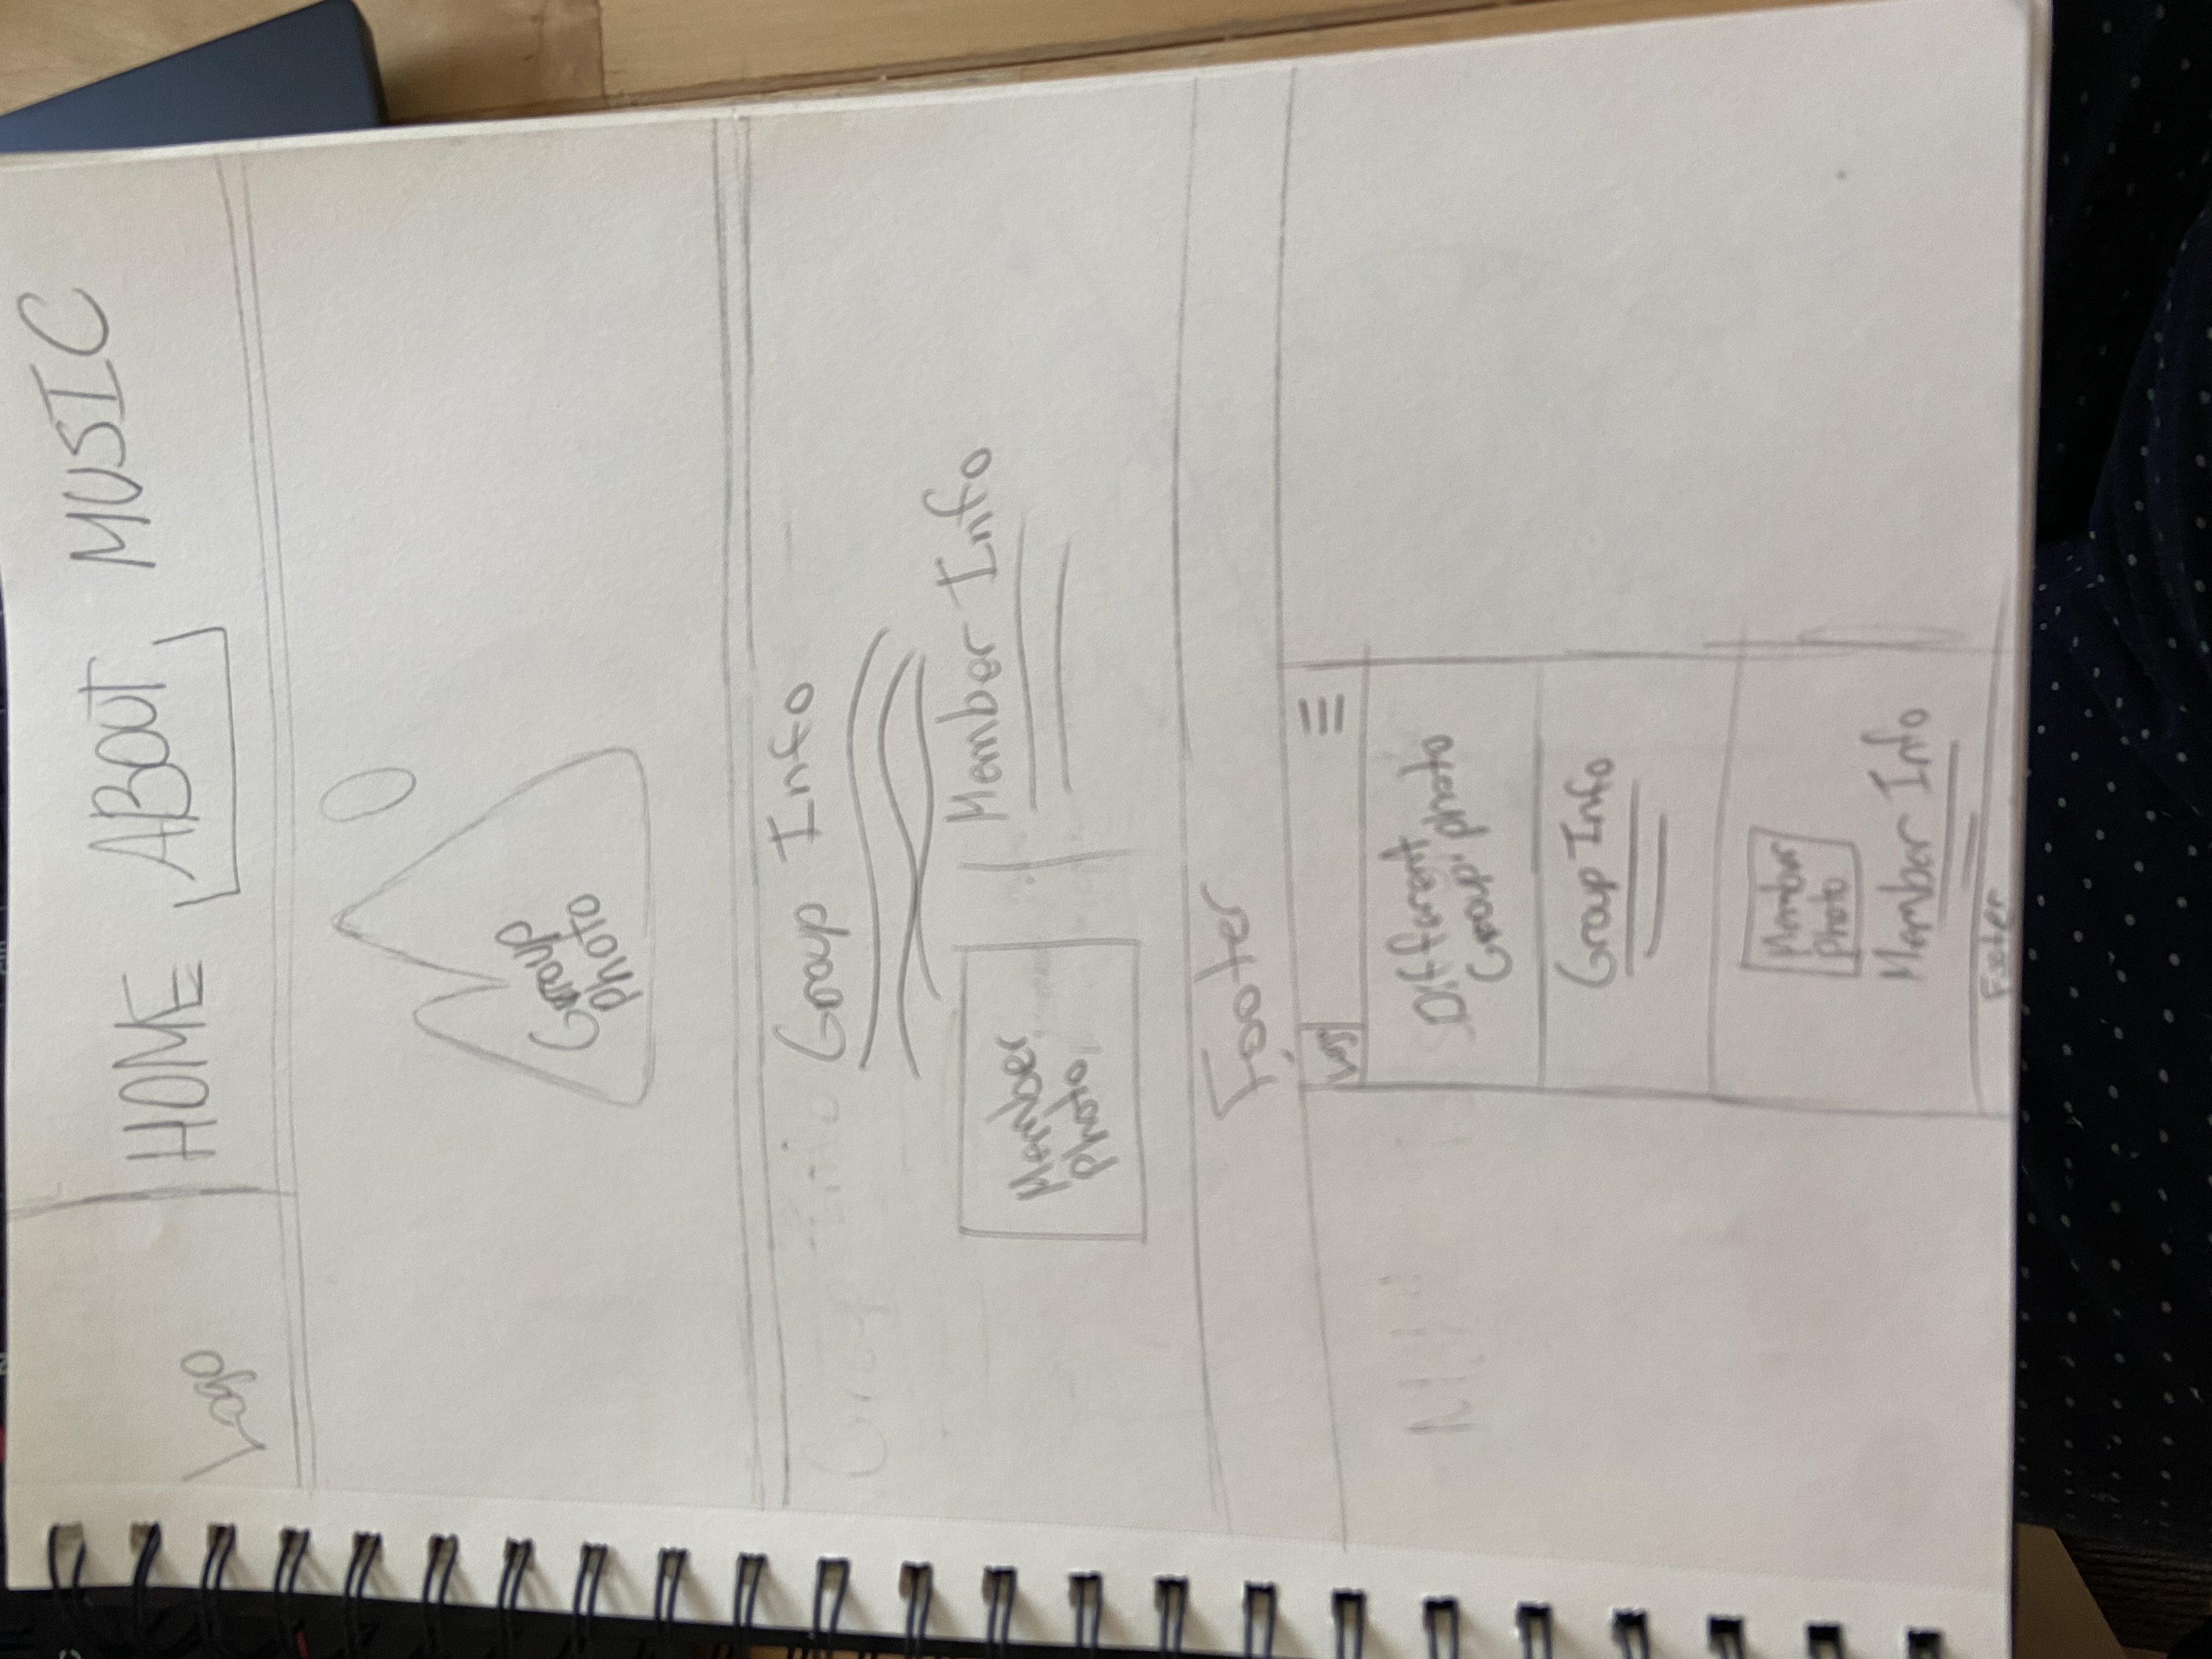 Logo
HOME ABOUT MUSIC
Group
Photo
Group Info
Group Info
Member
Photo
Member Info
Footer
Logo
Different
Group photo
Group Info
Member
Photo
Member Info
Footer